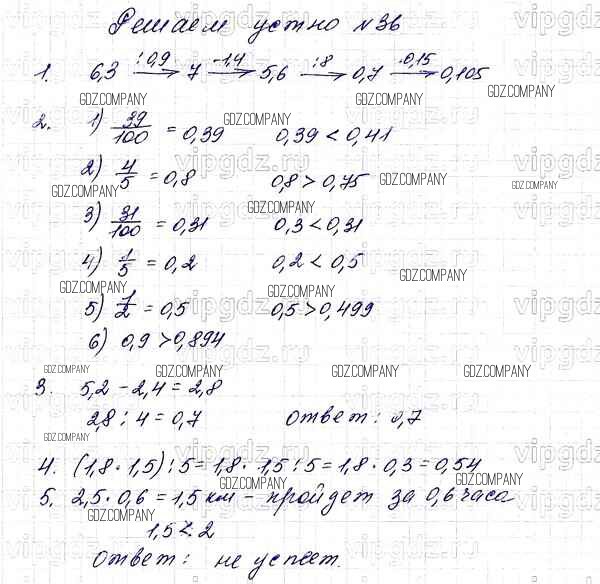 Решаем устно №36
1. 6,3 :0,9→ 7 -1,4→ 5,6 :8→ 0,7 ·0,15→ 0,105
2. 1) 39/100 = 0,39 0,39 < 0,41
2) 4/5 = 0,8 0,8 > 0,75
3) 31/100 = 0,31 0,3 < 0,31
4) 1/5 = 0,2 0,2 < 0,5
5) 1/2 = 0,5 0,5 > 0,499
6) 0,9 > 0,894
3. 5,2 - 2,4 = 2,8
2,8 : 4 = 0,7 Ответ: 0,7
4. (1,8 · 1,5) : 5 = 1,8 · 1,5 : 5 = 1,8 · 0,3 = 0,54
5. 2,5 · 0,6 = 1,5 км - пройдет за 0,6 часа
1,5 < 2
Ответ: не успеет.
GDZ.COMPANY
vipgdz.ru